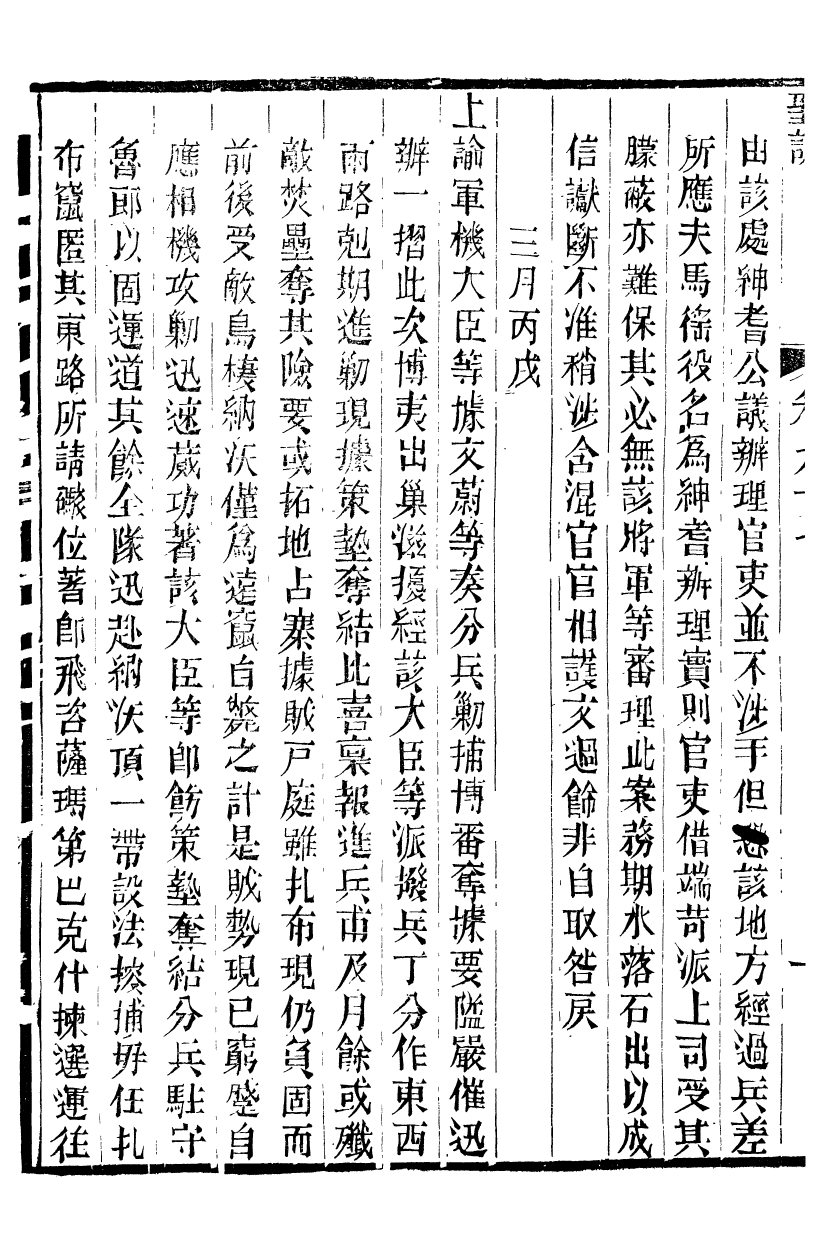 由該處紳耆公議辦理官吏並不涉手但恐該地方經過兵差
所應夫馬徭役名為紳耆辦理實則官吏借端苛派上司受其
朦蔽亦難保其必無該將軍等審理此案務期水落石出以成
信讞斷不准稍涉含混官官相護文過飾非自取咎戾
三月丙戌
上諭軍機大臣等據文蔚等奏分兵勦捕博番奪據要隘嚴催迅
辦一摺此次博夷出巢滋擾經該大臣等派撥兵丁分作東西
兩路剋期進勦現據策墊奪結比喜稟報進兵甫及月餘或殲
敵焚壘奪其險要或拓地占寨據賊戶庭雖扎布現仍負固而
前後受敵鳥棲納沃僅為遠竄自斃之計是賊勢現已窮蹙自
應相機攻勦迅速蕆功著該大臣等卽飭策墊奪結分兵駐守
魯郎以固運道其餘全隊迅赴納沃頂一帶設法搜捕毋任扎
布竄匿其東路所請礮位著卽飛咨薩瑪第巴克什揀選運往